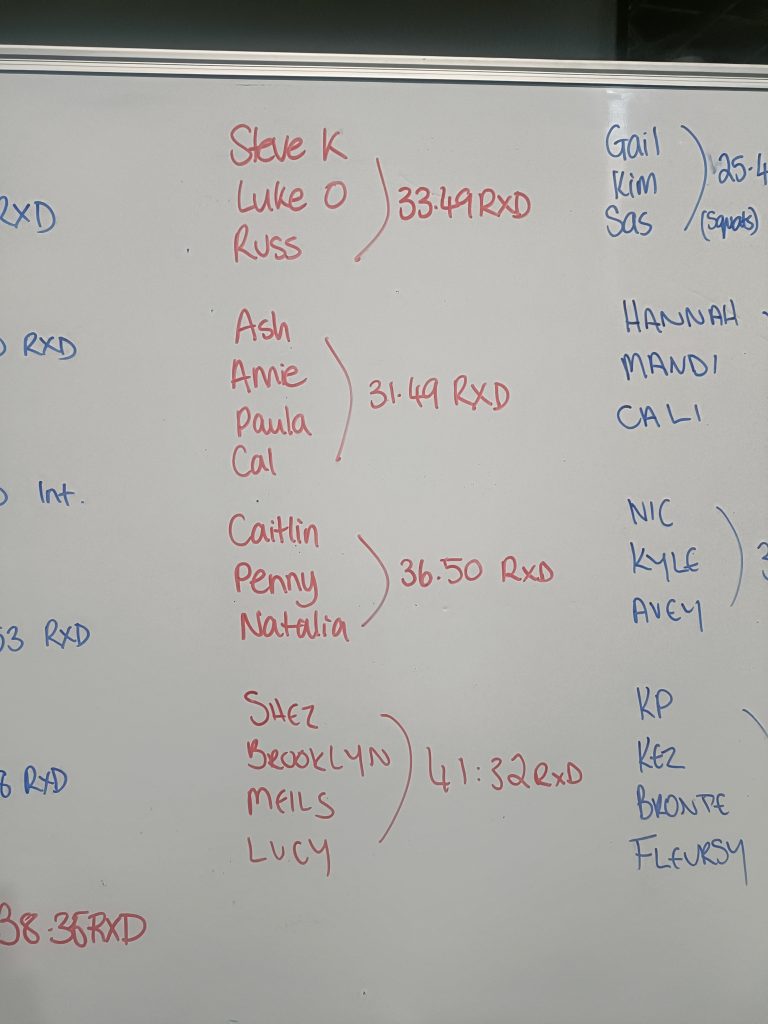 RXD
RXD
Int.
53 RXD
RXD
38.35RXD
Steve K
Luke O
Russ
33.49 RXD
Ash
Amie
Paula
Cal
31.49 RXD
Caitlin
Penny
Natalia
36.50 RXD
SHEZ
BROOKLYN
MEILS
LUCY
41:32 RXD
Gail
Kim
Sas
25.4
(Squats)
HANNAH
MANDI
CALI
NIC
KYLE
AVEY
3
KP
KEZ
BRONTE
FLEURSY